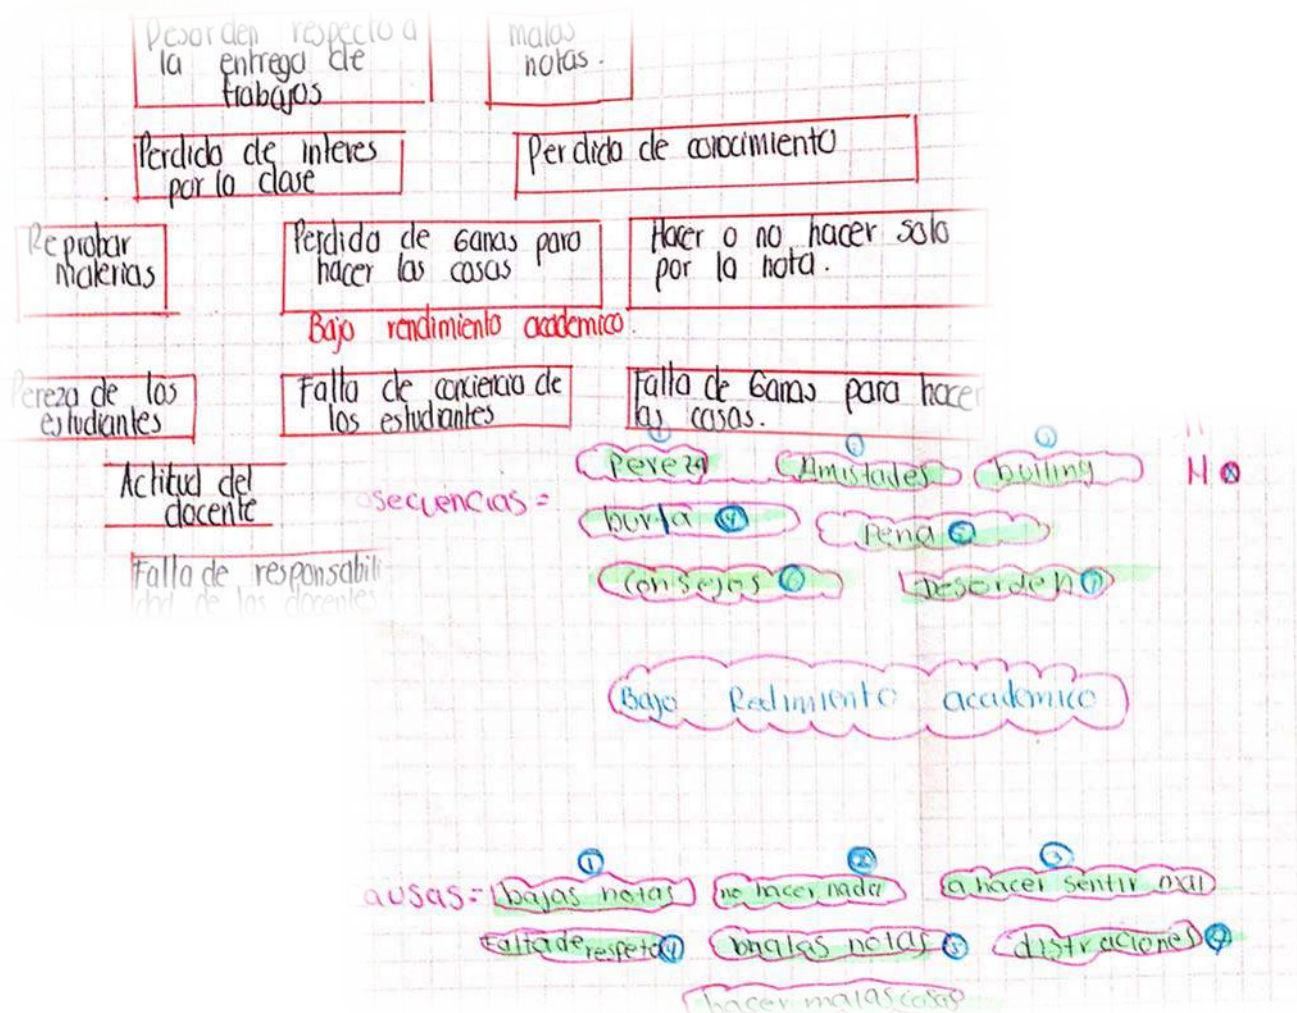 Desorden respecto a
la entrega de
trabajos
malas
notas.
Perdida de interes
por la clase
Perdida de conocimiento
Reprobar
materias
Perdida de Ganas para
hacer las cosas
Hacer o no hacer solo
por la nota.
Bajo rendimiento academico.
Pereza de los
estudiantes
Falta de conciencia de
los estudiantes
Falta de Ganas para hacer
las cosas.
Actitud del
docente
Falta de responsabili
dad de los docentes
secuencias =
① Pereza
② Amistades
③ bulling
burla ④
Pena ⑤
Consejos ⑥
Desorden ⑦
Bajo Redimiento academico
ausas =
① bajas notas
② no hacer nada
③ a hacer sentir mal
Falta de respeto ④
malas notas ⑤
distraciones
hacer malas cosas